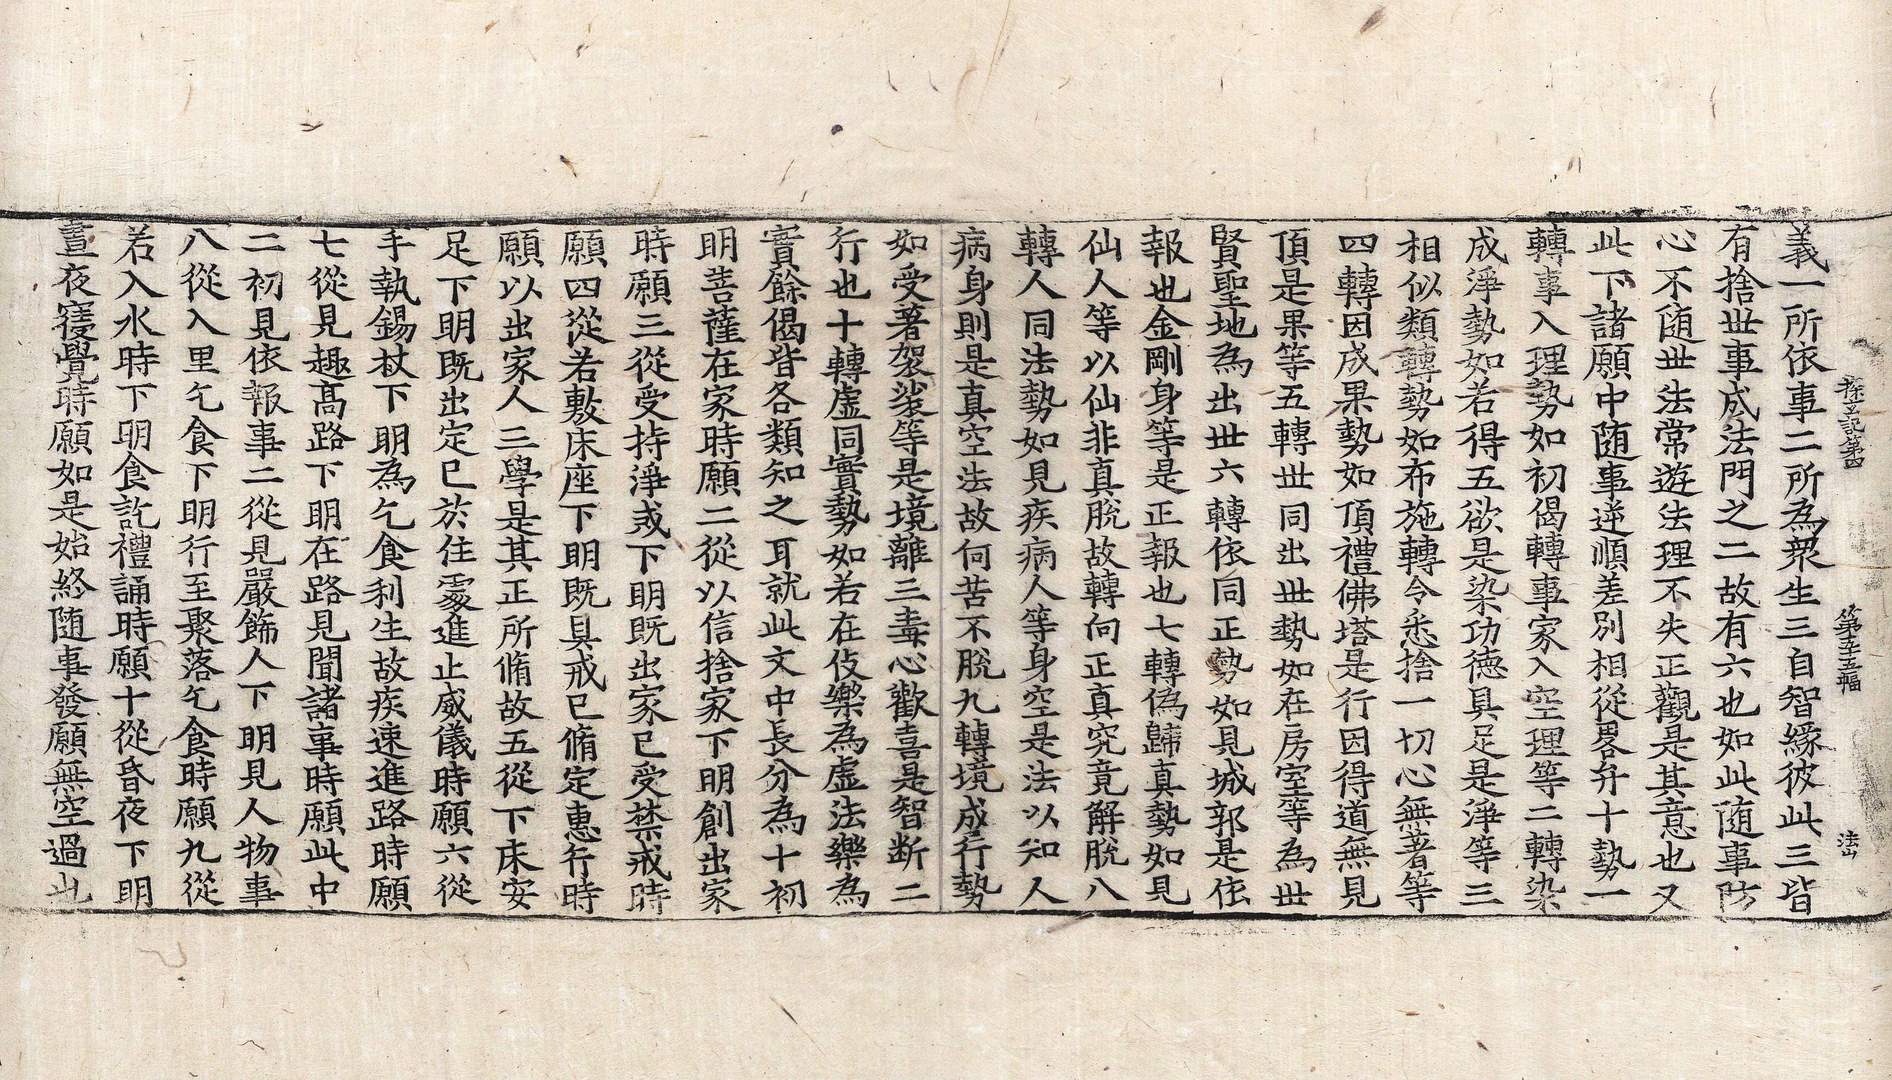 探玄記第四　第五十五幅　法山
義一所依事二所為衆生三自智緣彼此三皆
有捨世事成法門之二故有六也如此随事防
心不随世法常遊法理不失正觀是其意也又
此下諸願中随事逆順差別相從畧弁十勢一
轉事入理勢如初偈轉事家入空理等二轉染
成淨勢如若得五欲是染功德具足是淨等三
相似類轉勢如布施轉令悉捨一切心無著等
四轉因成果勢如頂禮佛塔是行因得道無見
頂是果等五轉世同出世勢如在房室等為世
賢聖地為出世六轉依同正勢如見城郭是依
報也金剛身等是正報也七轉偽歸真勢如見
仙人等以仙非真脫故轉向正真究竟解脫八
轉人同法勢如見疾病人等身空是法以知人
病身則是真空法故何苦不脫九轉境成行勢
如受著袈裟等是境離三毒心歡喜是智断二
行也十轉虛同實勢如若在伎樂為虛法樂為
實餘偈皆各類知之耳就此文中長分為十初
明菩薩在家時願二從以信捨家下明創出家
時願三從受持淨戒下明既出家已受禁戒時
願四從若敷床座下明既具戒已脩定惠行時
願以出家人三學是其正所脩故五從下床安
足下明既出定已於住䖏進止威儀時願六從
手執錫杖下明為乞食利生故疾速進路時願
七從見趣高路下明在路見聞諸事時願此中
二初見依報事二從見嚴飾人下明見人物事
八從入里乞食下明行至聚落乞食時願九從
若入水時下明食訖禮誦時願十從昏夜下明
晝夜寤覺時願如是始終随事發願無空過也